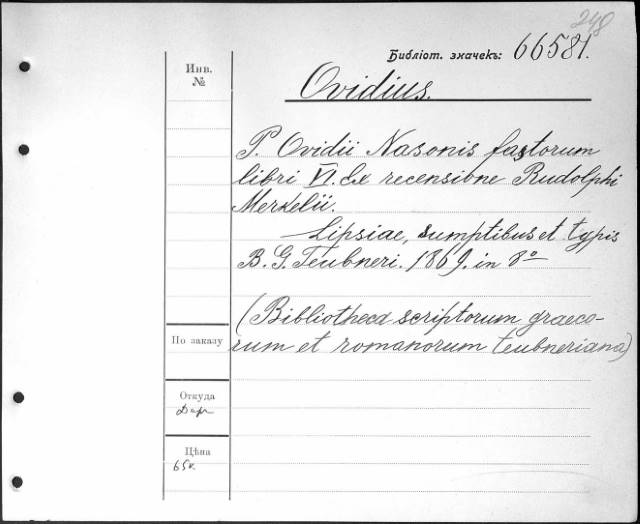 248
Библіот. значекъ: 66581.
Инв.
№
Ovidius.
P. Ovidii Nasonis fastorum
libri VI. Ex recensione Rudolphi
Merkelii.
Lipsiae, sumptibus et typis
B. G. Teubneri. 1869. in 8º
(Bibliotheca scriptorum graeco-
rum et romanorum teubneriana)
По заказу
Откуда
Дар
Цѣна
65к.